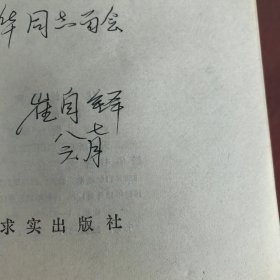 华同志留念
崔自铎
八六.七月
求实出版社